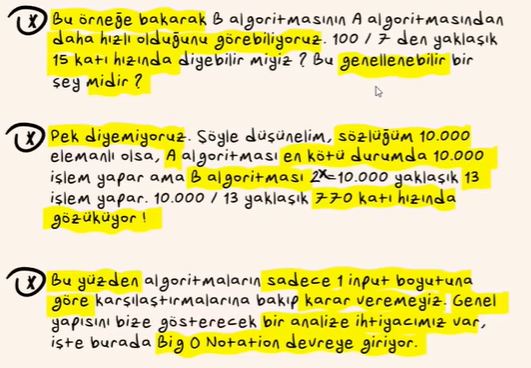 Bu örneğe bakarak B algoritmasının A algoritmasından
daha hızlı olduğunu görebiliyoruz. 100 / 7 den yaklaşık
15 katı hızında diyebilir miyiz ? Bu genellenebilir bir
şey midir ?
Pek diyemiyoruz. Şöyle düşünelim, sözlüğüm 10.000
elemanlı olsa, A algoritması en kötü durumda 10.000
işlem yapar ama B algoritması 2^x=10.000 yaklaşık 13
işlem yapar. 10.000 / 13 yaklaşık 770 katı hızında
gözüküyor !
Bu yüzden algoritmaların sadece 1 input boyutuna
göre karşılaştırmalarına bakıp karar veremeyiz. Genel
yapısını bize gösterecek bir analize ihtiyacımız var,
işte burada Big O Notation devreye giriyor.